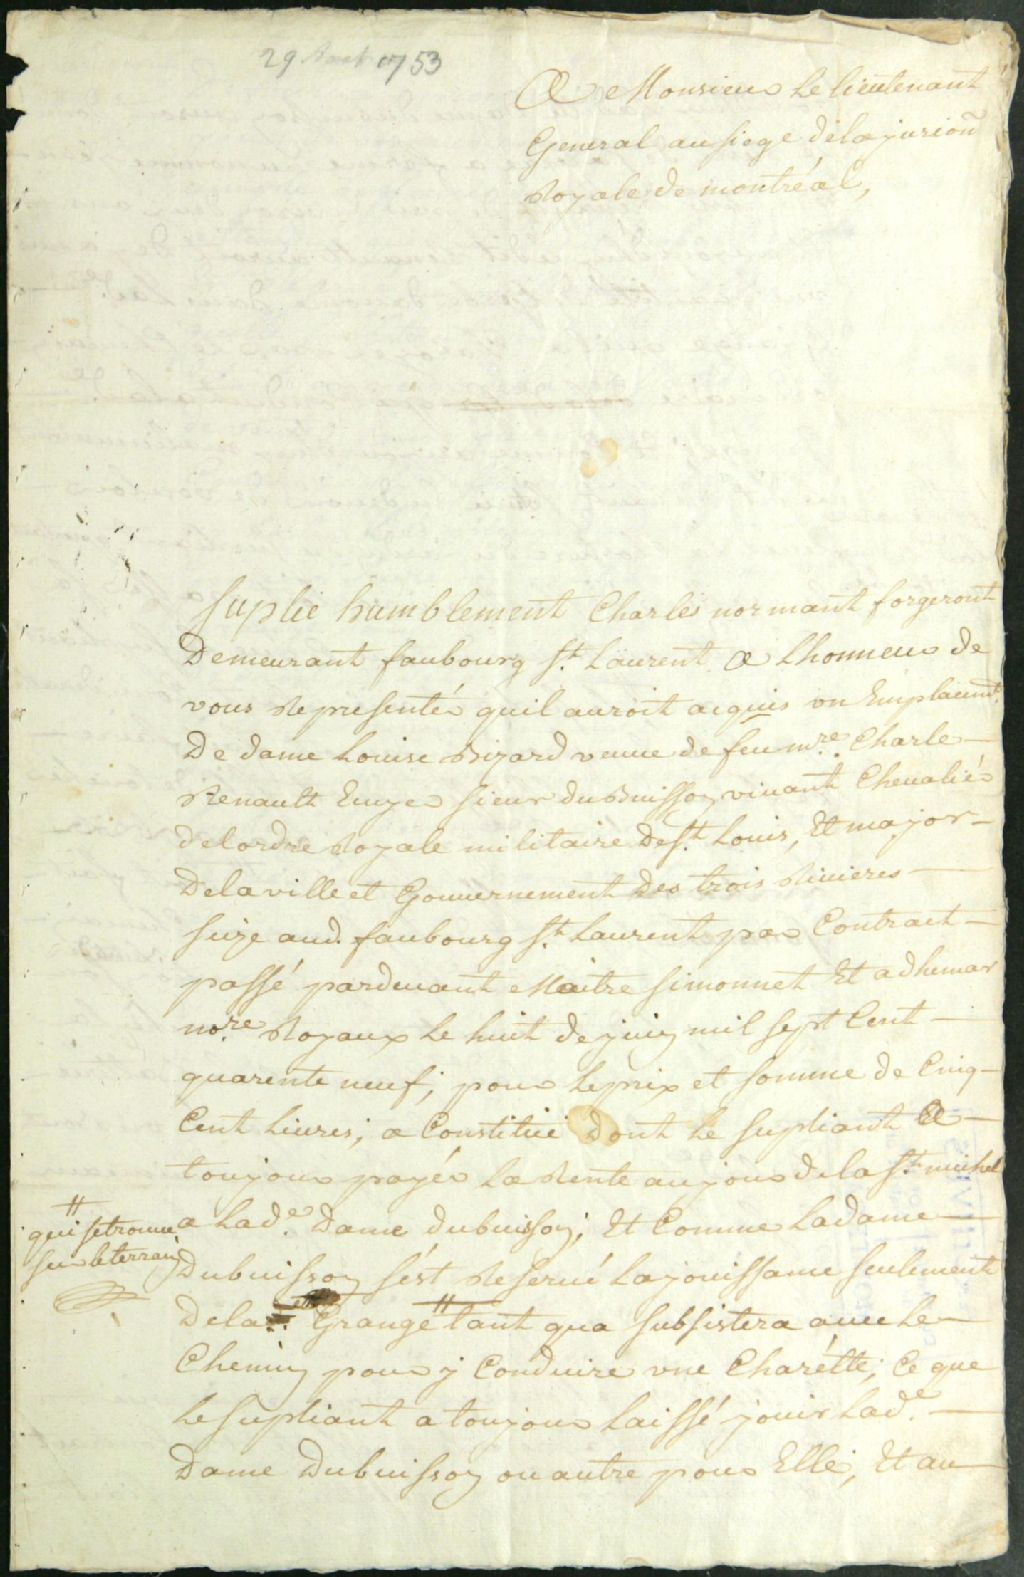 29 Aout 1753
A Monsieur Le lieutenant
General au siege dela jurion
Royale de montréal,
Suplie humblement Charles normant forgeront
Demeurant faubourg St. Laurent, A Lhonneur de
vous Representér quil auroit acquis un Emplacemt.
De dame Louise Bizard veuve de feu mre. Charle
Renault Ecuyer sieur duBuisson vivant Chevaliér
delordre Royale militaire De St. Louis, Et major
Dela ville et Gouvernement Des trois Rivieres
size aud. faubourg St. Laurent par Contract
passé pardevant Maitre simonnet Et adhemar
nore. Royaux Le huit de juin mil sept Cent
quarente neuf; pour le prix et somme de Cinq
Cent Livres; a Constitué Dont Le supliant A
toujours payér La Rente au jour dela St. michel
a Lade. Dame dubuisson; Et Comme Ladame
# qui se trouve
sur le terrain
Dubuisson s'ést Reservé La jouissance seulement
Dela Grange # tant qua subsistera avec Le
Chemin pour y Conduire une Charétte; Ce que
Le supliant a toujours Laissé jouir Lade.
Dame Dubuisson ou autre pour Elle; Et au